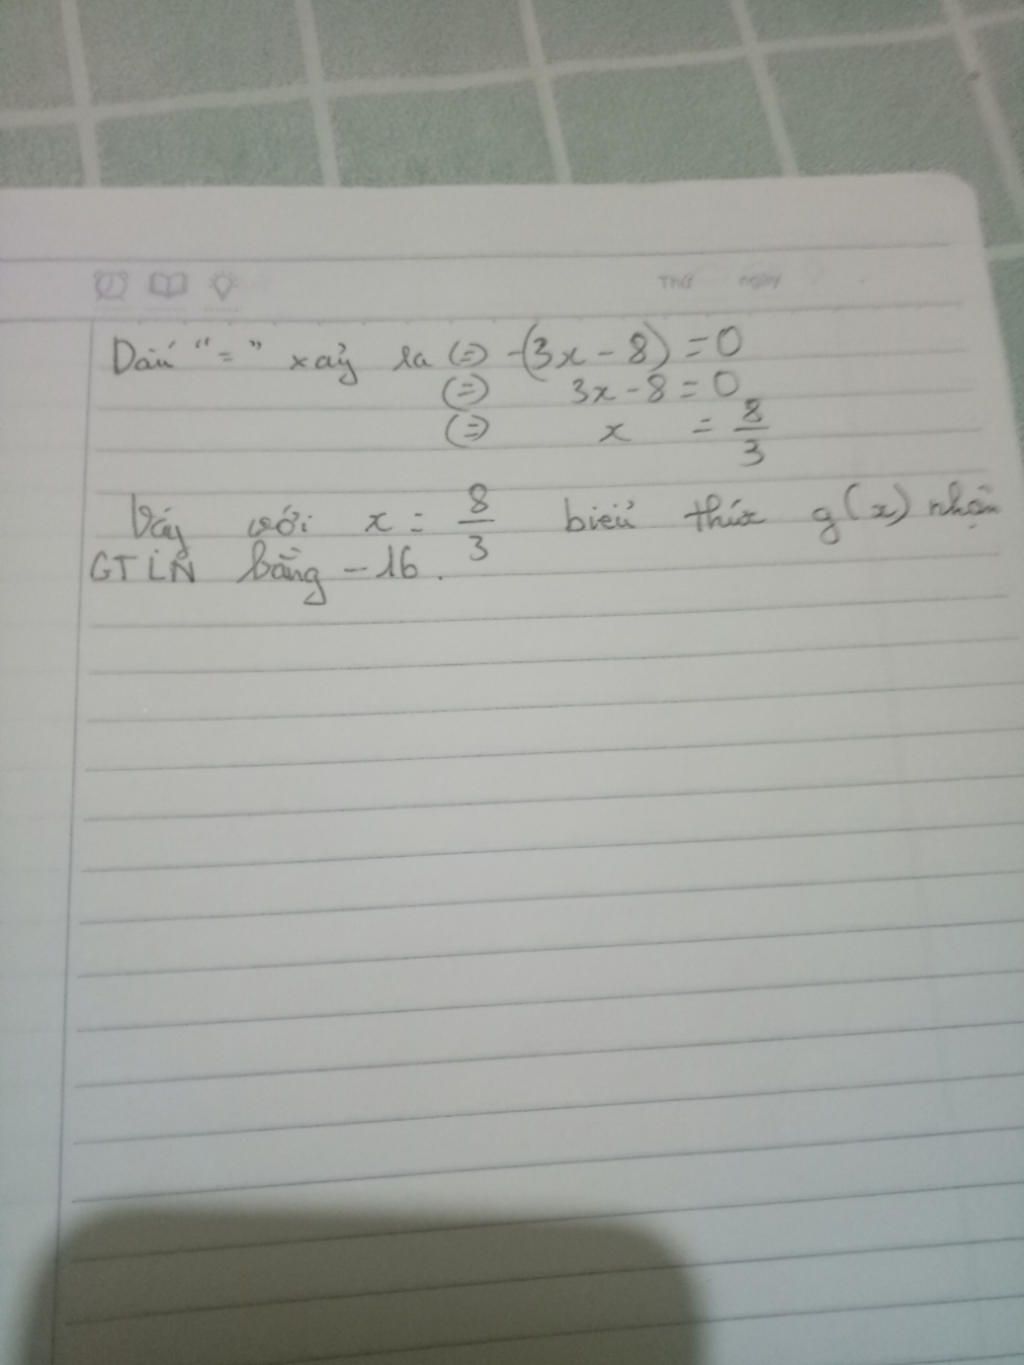 Thứ ngày
Dấu "=" xảy ra (=) -(3x - 8) = 0
(=) 3x - 8 = 0
(=) x = 8/3
Vậy với x = 8/3 biểu thức g(x) nhận
GTLN bằng -16.